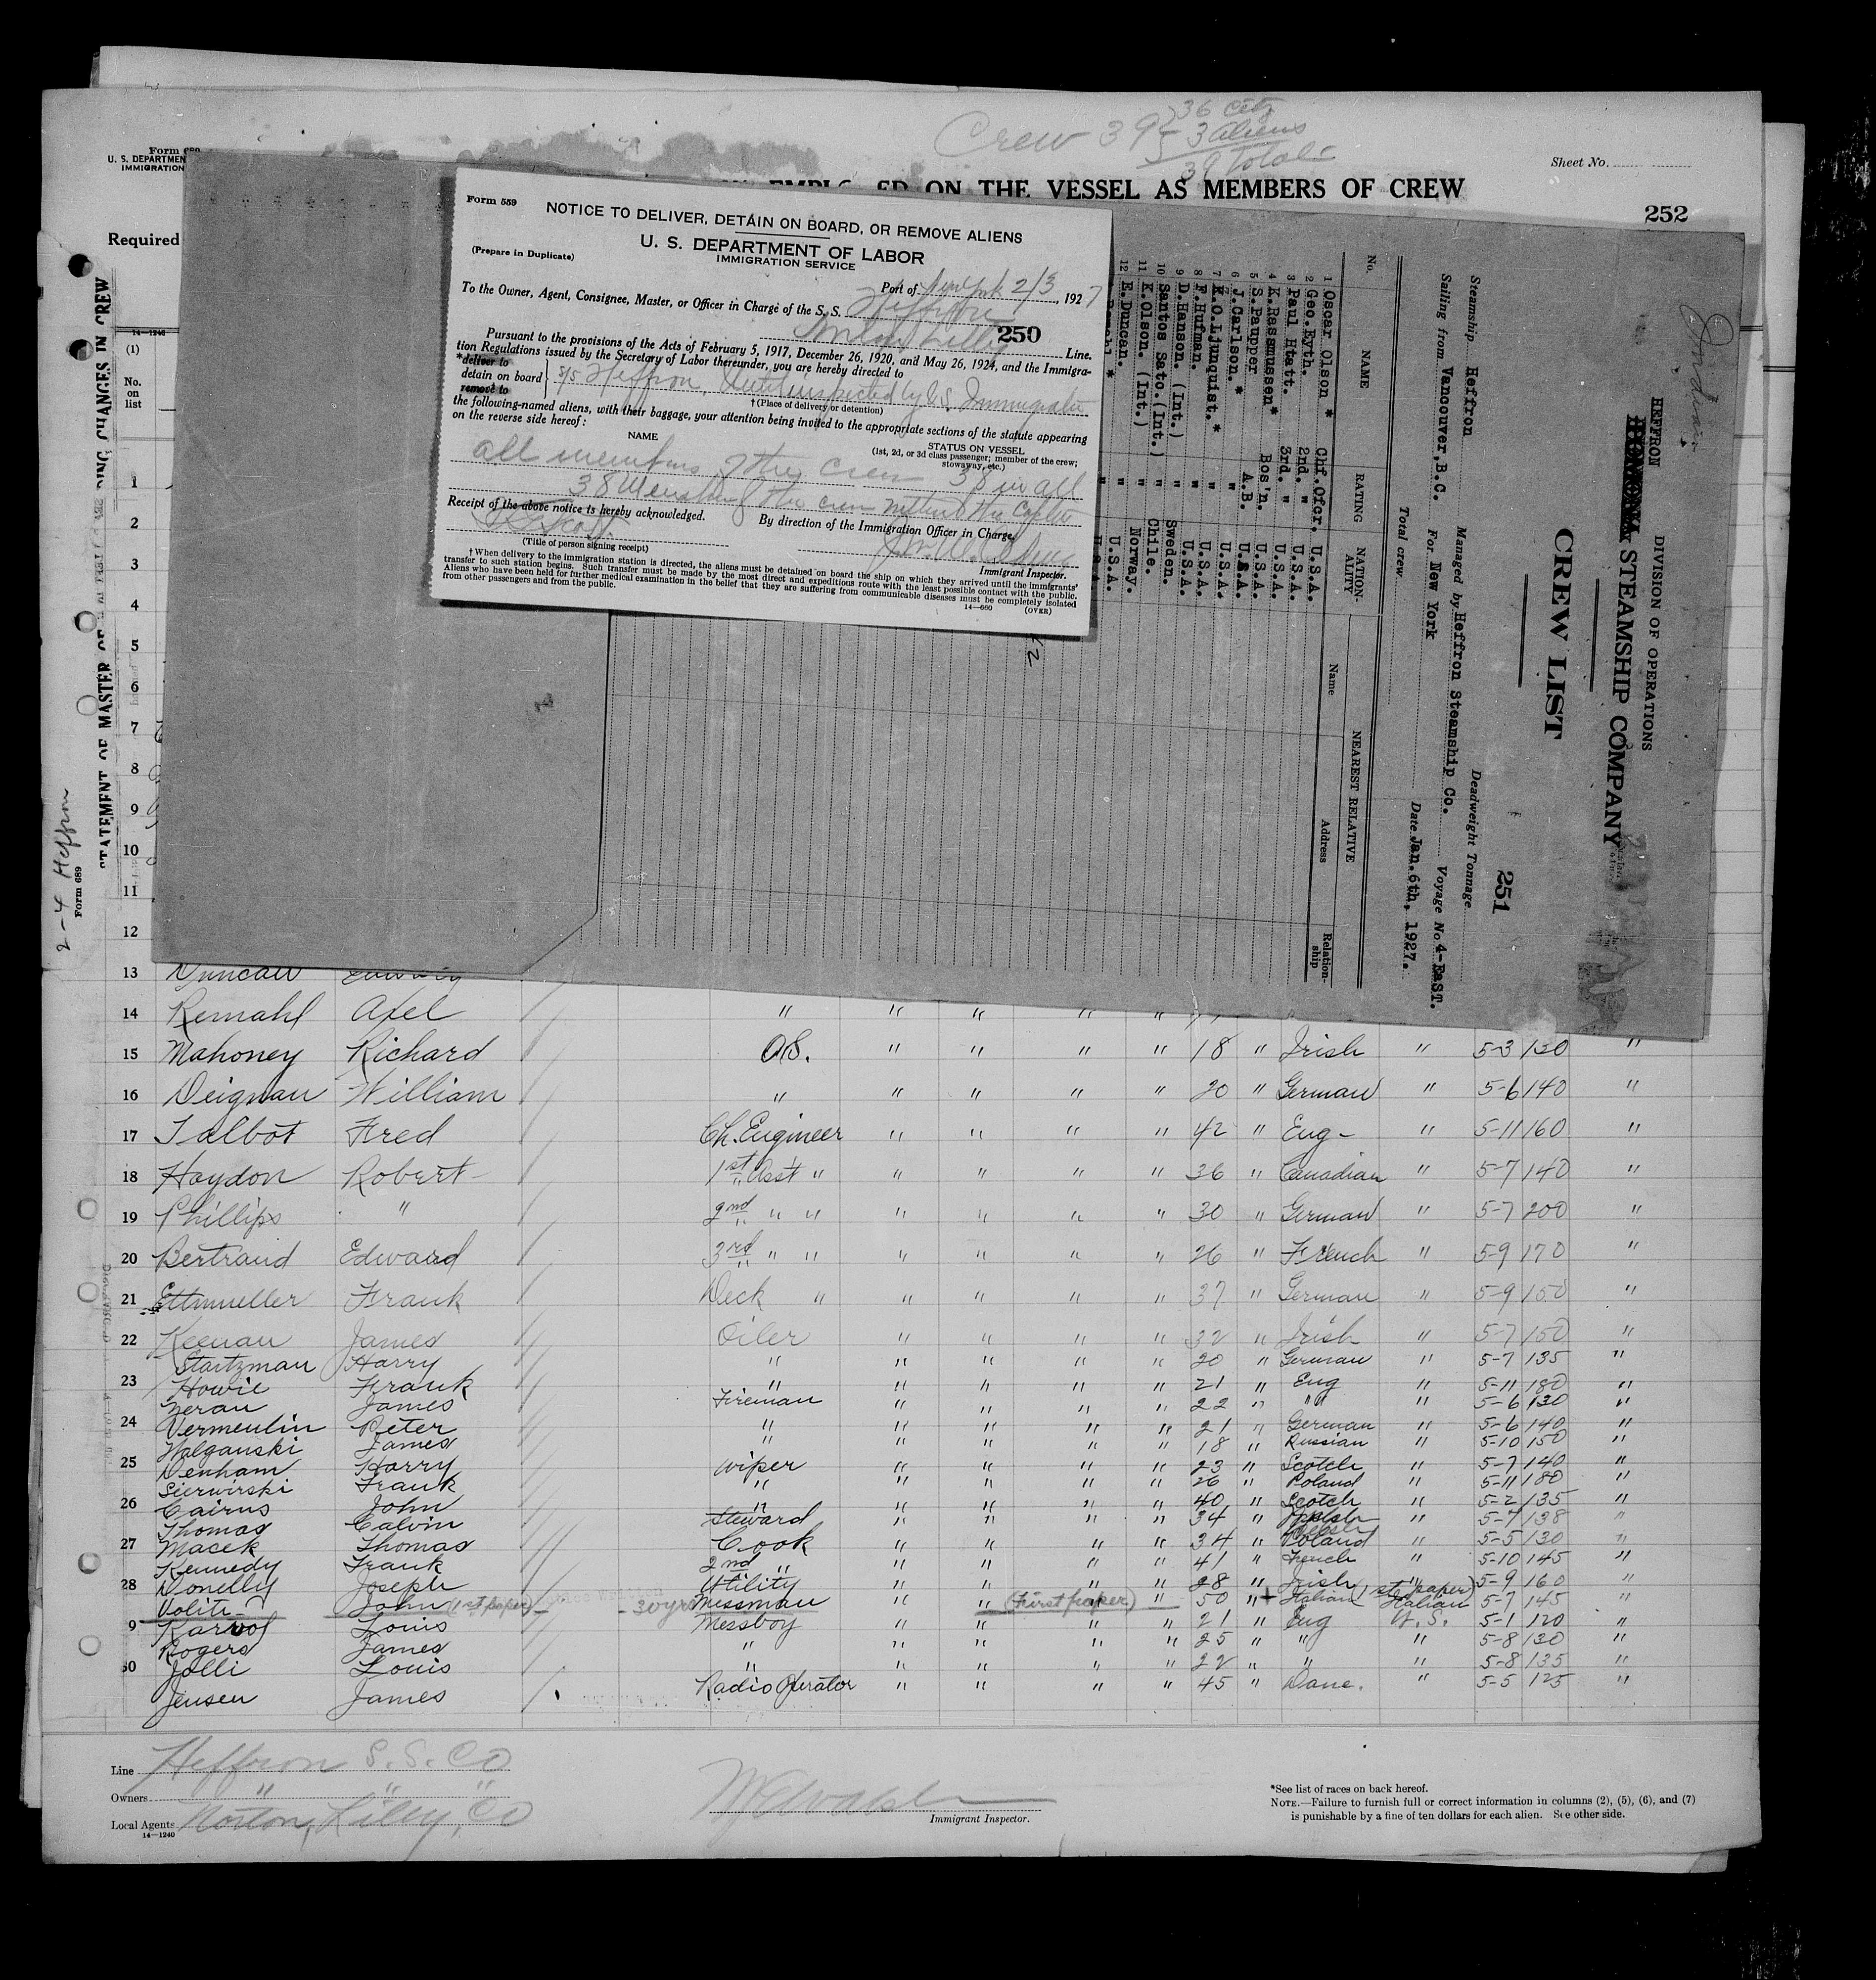 Crew 39 36 Citz
3 aliens
39 Total
Form 689
U. S. DEPARTMEN
IMMIGRATION
Sheet No.
ED ON THE VESSEL AS MEMBERS OF CREW
252
Required
Form 559
NOTICE TO DELIVER, DETAIN ON BOARD, OR REMOVE ALIENS
U. S. DEPARTMENT OF LABOR
IMMIGRATION SERVICE
(Prepare in Duplicate)
Port of New York 2/3, 1927
To the Owner, Agent, Consignee, Master, or Officer in Charge of the S. S. Heffron
250 Line.
Pursuant to the provisions of the Acts of February 5, 1917, December 26, 1920, and May 26, 1924, and the Immigra-
tion Regulations issued by the Secretary of Labor thereunder, you are hereby directed to
*deliver to
detain on board
remove to
S/S Heffron, Until inspected by U.S. Immigration
†(Place of delivery or detention)
the following-named aliens, with their baggage, your attention being invited to the appropriate sections of the statute appearing
on the reverse side hereof:
NAME
STATUS ON VESSEL
(1st, 2d, or 3d class passenger; member of the crew;
stowaway, etc.)
all members of the crew 38 in all
38 Members of the crew
Receipt of the above notice is hereby acknowledged.
By direction of the Immigration Officer in Charge,
(Title of person signing receipt)
Immigrant Inspector.
†When delivery to the immigration station is directed, the aliens must be detained on board the ship on which they arrived until the immigrants'
transfer to such station begins. Such transfer must be made by the most direct and expeditious route with the least possible contact with the public.
Aliens who have been held for further medical examination in the belief that they are suffering from communicable diseases must be completely isolated
from other passengers and from the public.
14—660
(OVER)
DIVISION OF OPERATIONS
HEFFRON
STEAMSHIP COMPANY
CREW LIST
251
Steamship Heffron Managed by Heffron Steamship Co. Deadweight Tonnage
Sailing from Vancouver, B.C. For New York Voyage No 4-EAST.
Total crew Date Jan. 6th, 1927.
No. NAME RATING NATION-ALITY NEAREST RELATIVE
Name Address Relation-ship
1 Oscar Olson * Chf.Ofcr. U.S.A.
2 Geo.Fyth. 2nd. " U.S.A.
3 Paul Htatt. 3rd. " U.S.A.
4 K.Rassmussen* Bos'n. U.S.A.
5 S.Paupper A.B. U.S.A.
6 J.Carlson. * " U.S.A.
7 K.O.Ljunquist. * " U.S.A.
8 F.Hufman. " U.S.A.
9 D.Hanson. (Int.) " Sweden.
10 Santos Sato.(Int.) " Chile.
11 K.Olson. (Int.) " Norway.
12 E.Duncan. " U.S.A.
STATEMENT OF MASTER OF
ING CHANGES IN CREW
2-4 Heffron
Form 689
14—1240
(1)
No.
on
list
1
2
3
4
5
6
7
8
9
10
11
12
13 Duncan
14 Remahl Axel " " " " "
15 Mahoney Richard O.S. " " " " 18 " Irish " 5-3 130 "
16 Deignan William " " " " " 20 " German " 5-6 140 "
17 Talbot Fred Ch. Engineer " " " " 42 " Eng- " 5-11 160 "
18 Haydon Robert 1st Asst " " " " " 36 " Canadian " 5-7 140 "
19 Phillips " 2nd " " " " " " 30 " German " 5-7 200 "
20 Bertrand Edward 3rd " " " " " " 26 " French " 5-9 170 "
21 Ettmueller Frank Deck " " " " " 37 " German " 5-9 150 "
22 Keenan James Oiler " " " " 32 " Irish " 5-7 150 "
Startzman Harry " " " " " 20 " German " 5-7 135 "
23 Howie Frank " " " " " 21 " Eng " 5-11 180 "
Neran James Fireman " " " " 22 " " " 5-6 130 "
24 Vermeulin Peter " " " " " 21 " German " 5-6 140 "
Walganski James " " " " " 18 " Russian " 5-10 150 "
25 Denham Harry Wiper " " " " 23 " Scotch " 5-7 140 "
Sierwirski Frank " " " " " 26 " Poland " 5-11 180 "
26 Cairns John " " " " " 40 " Scotch " 5-2 135 "
Thomas Calvin Steward " " " " 34 " Welsh " 5-7 138 "
27 Masek Thomas Cook " " " " 34 " Poland " 5-5 130 "
Kennedy Frank 2nd " " " " " 41 " French " 5-10 145 "
28 Donelly Joseph Utility " " " " 28 " Irish " 5-9 160 "
Voliti John (1st paper) 30 yrs Messman " " (First paper) " 50 " + Italian (1st paper) Italian 5-7 145 "
9 Karvol Louis Messboy " " " " 21 " Eng U.S. 5-1 120 "
Rogers James " " " " " 25 " " " 5-8 130 "
30 Jolli Louis " " " " " 22 " " " 5-8 135 "
Jensen James Radio Operator " " " " 45 " Dane. " 5-5 125 "
Line Heffron S.S. Co
Owners " " "
Local Agents Norton, Lilly, Co
14—1240
Immigrant Inspector.
*See list of races on back hereof.
NOTE.—Failure to furnish full or correct information in columns (2), (5), (6), and (7)
is punishable by a fine of ten dollars for each alien. See other side.